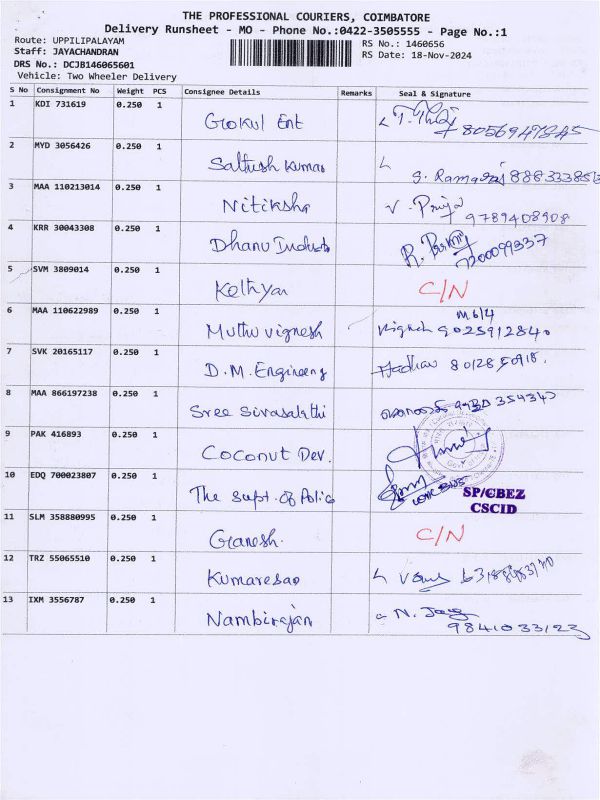 THE PROFESSIONAL COURIERS, COIMBATORE
Delivery Runsheet - MO - Phone No.:0422-3505555 - Page No.:1
Route: UPPILIPALAYAM
Staff: JAYACHANDRAN
RS No.: 1460656
DRS No.: DCJB146065601
RS Date: 18-Nov-2024
Vehicle: Two Wheeler Delivery
S No Consignment No Weight PCS Consignee Details Remarks Seal & Signature
1 KDI 731619 0.250 1 Gokul Ent
2 MYD 3056426 0.250 1 Sathish Kumar
3 MAA 110213014 0.250 1 Nitiksha V. Priya 9789408908
4 KRR 30043308 0.250 1 Dhanu Industs 7200099337
5 SVM 3809014 0.250 1 C/N
6 MAA 110622989 0.250 1 Muthu vignesh Vignesh 9025912840
7 SVK 20165117 0.250 1 D.M. Engineeng Madhav
8 MAA 866197238 0.250 1 Sree Sivasakthi
9 PAK 416893 0.250 1 Coconut Dev.
10 EDQ 700023807 0.250 1 The Supt. of Polic
SP/CBEZ
CSCID
11 SLM 358880995 0.250 1 Ganesh. C/N
12 TRZ 55065510 0.250 1 Kumaresan
13 IXM 3556787 0.250 1 Nambirajan
9841033123